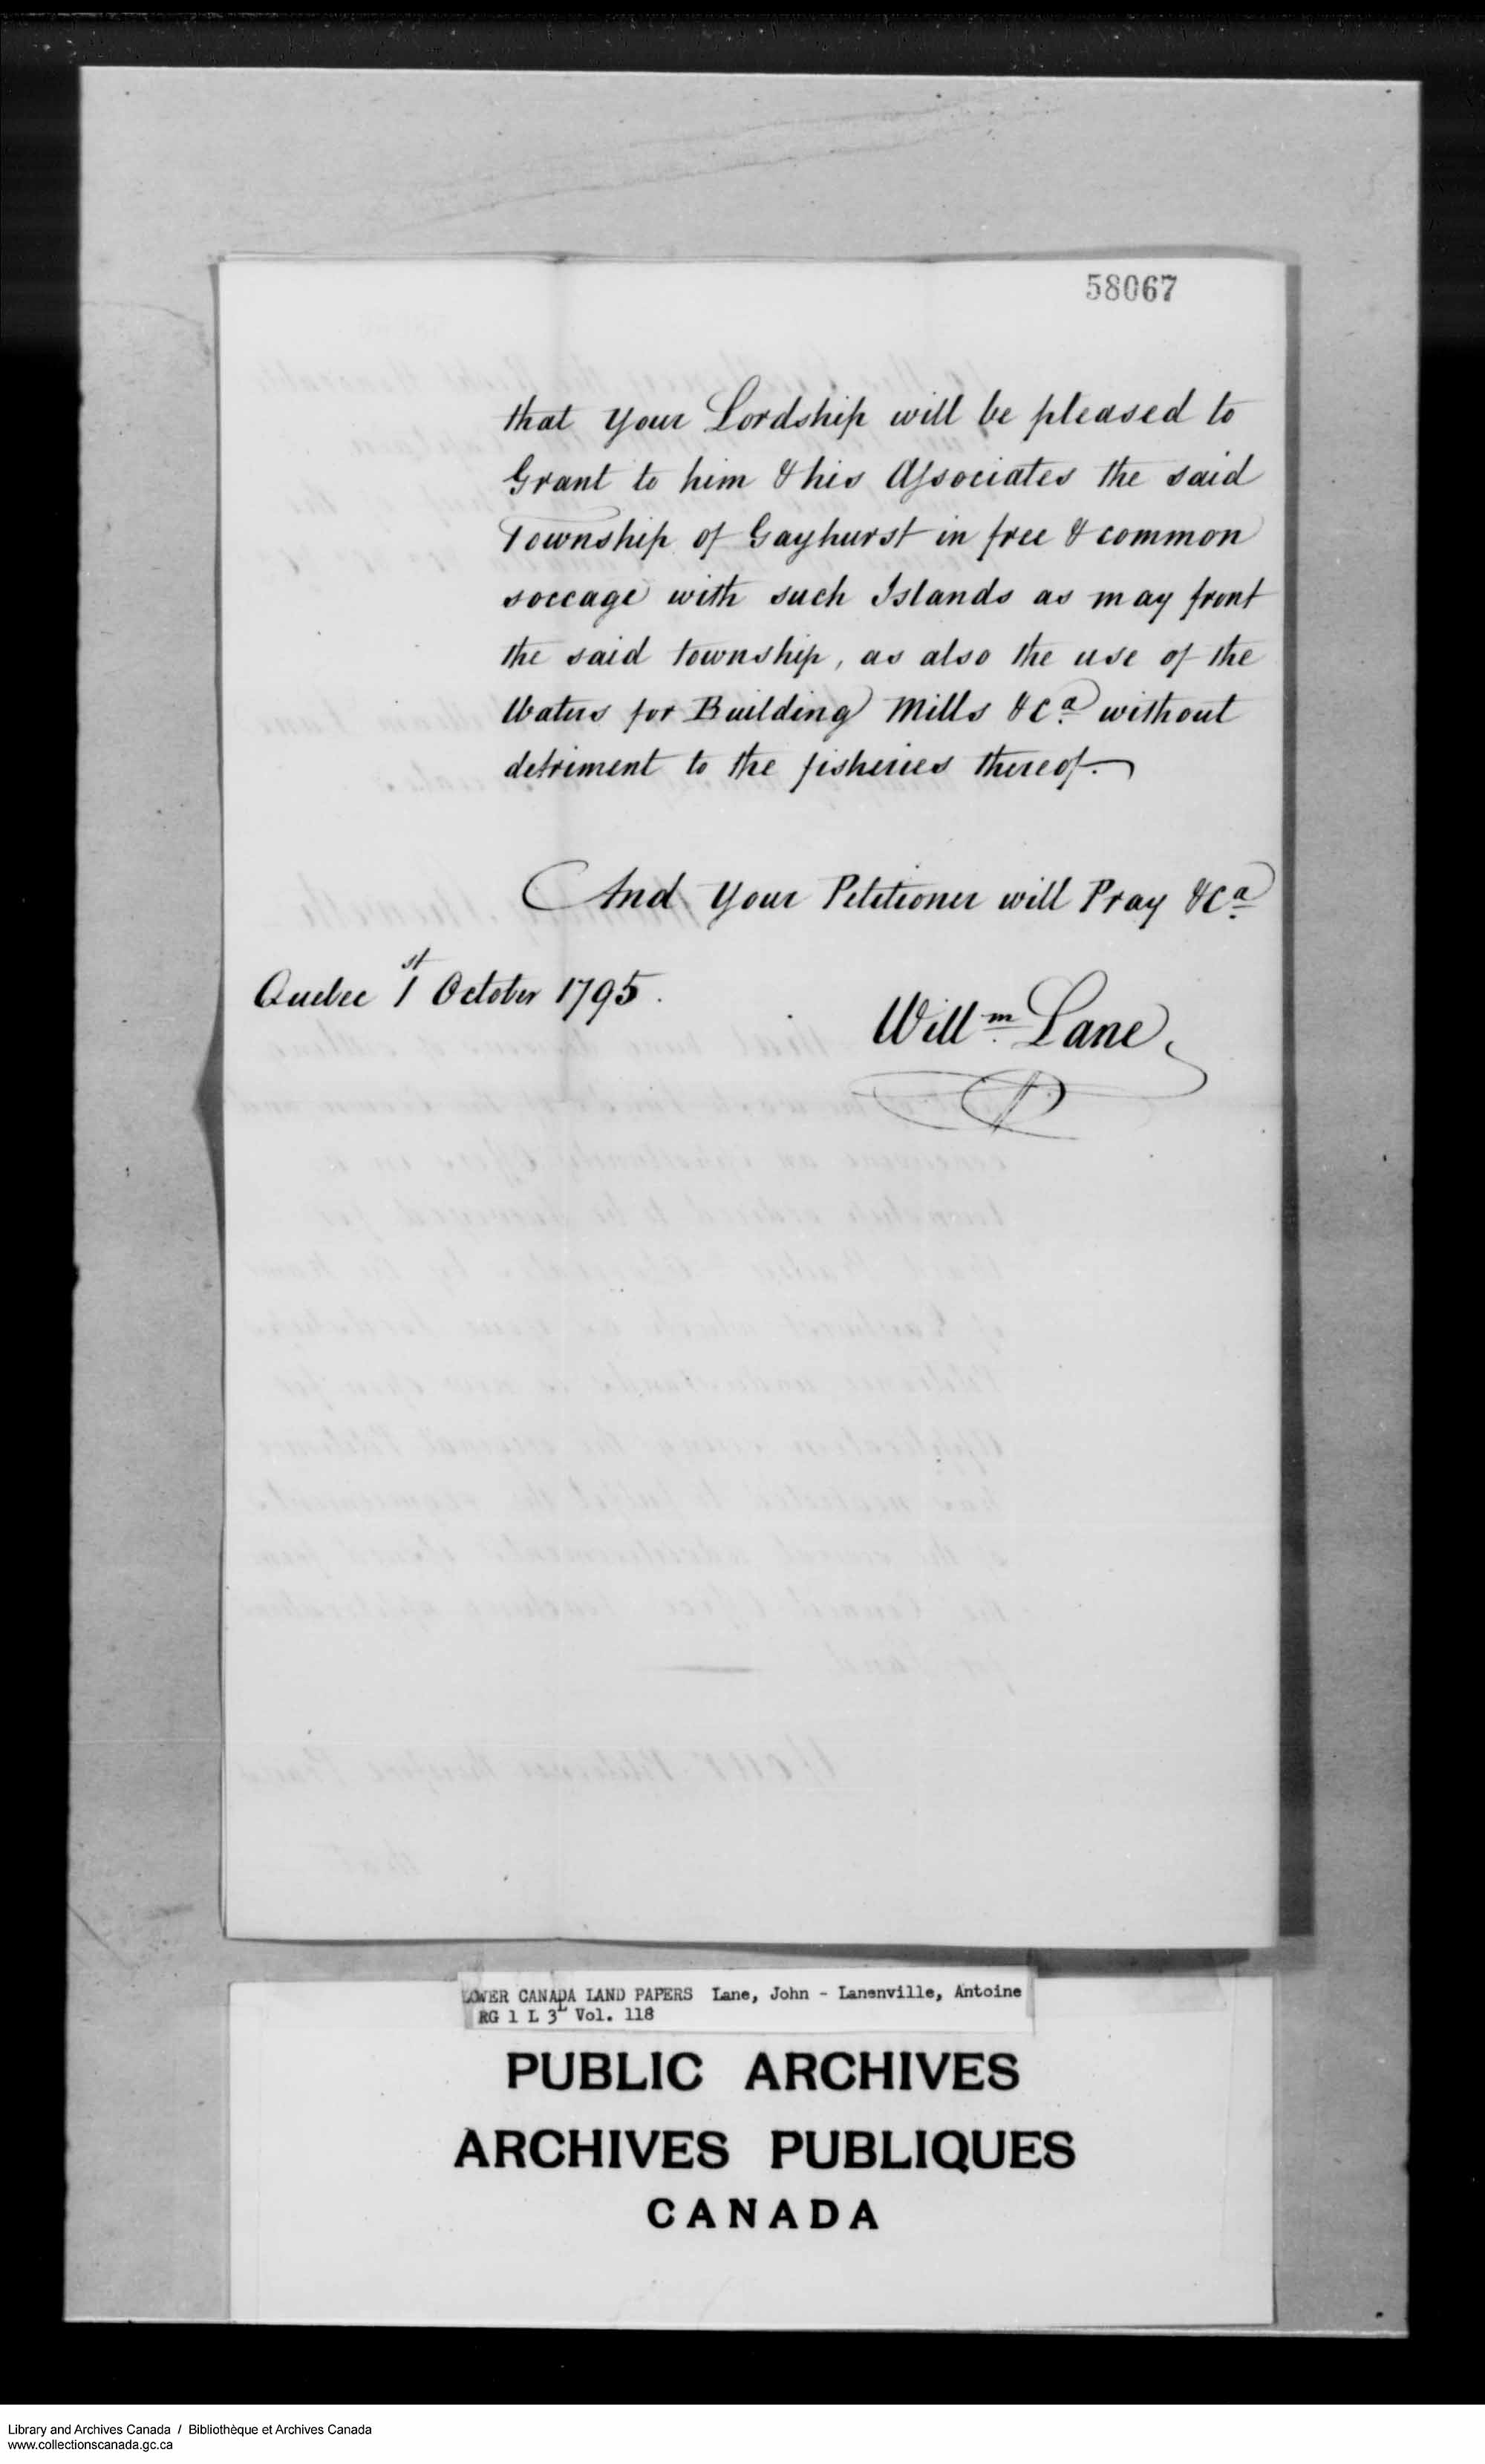 58067
that Your Lordship will be pleased to
Grant to him & his Associates the said
Township of Gayhurst in free & common
soccage with such Islands as may front
the said township, as also the use of the
Waters for Building Mills &Ca. without
detriment to the fisheries thereof.
And Your Petitioner will Pray &Ca.
Quebec 1st October 1795.
Willm. Lane
LOWER CANADA LAND PAPERS Lane, John - Lanenville, Antoine
RG 1 L 3L Vol. 118
PUBLIC ARCHIVES
ARCHIVES PUBLIQUES
CANADA
Library and Archives Canada / Bibliothèque et Archives Canada
www.collectionscanada.gc.ca